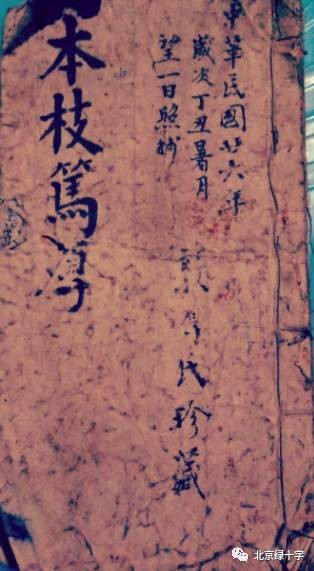 中華民國廿六年
歲次丁丑暑月
望一日照抄
氏珍藏
本枝篤
北京绿十字